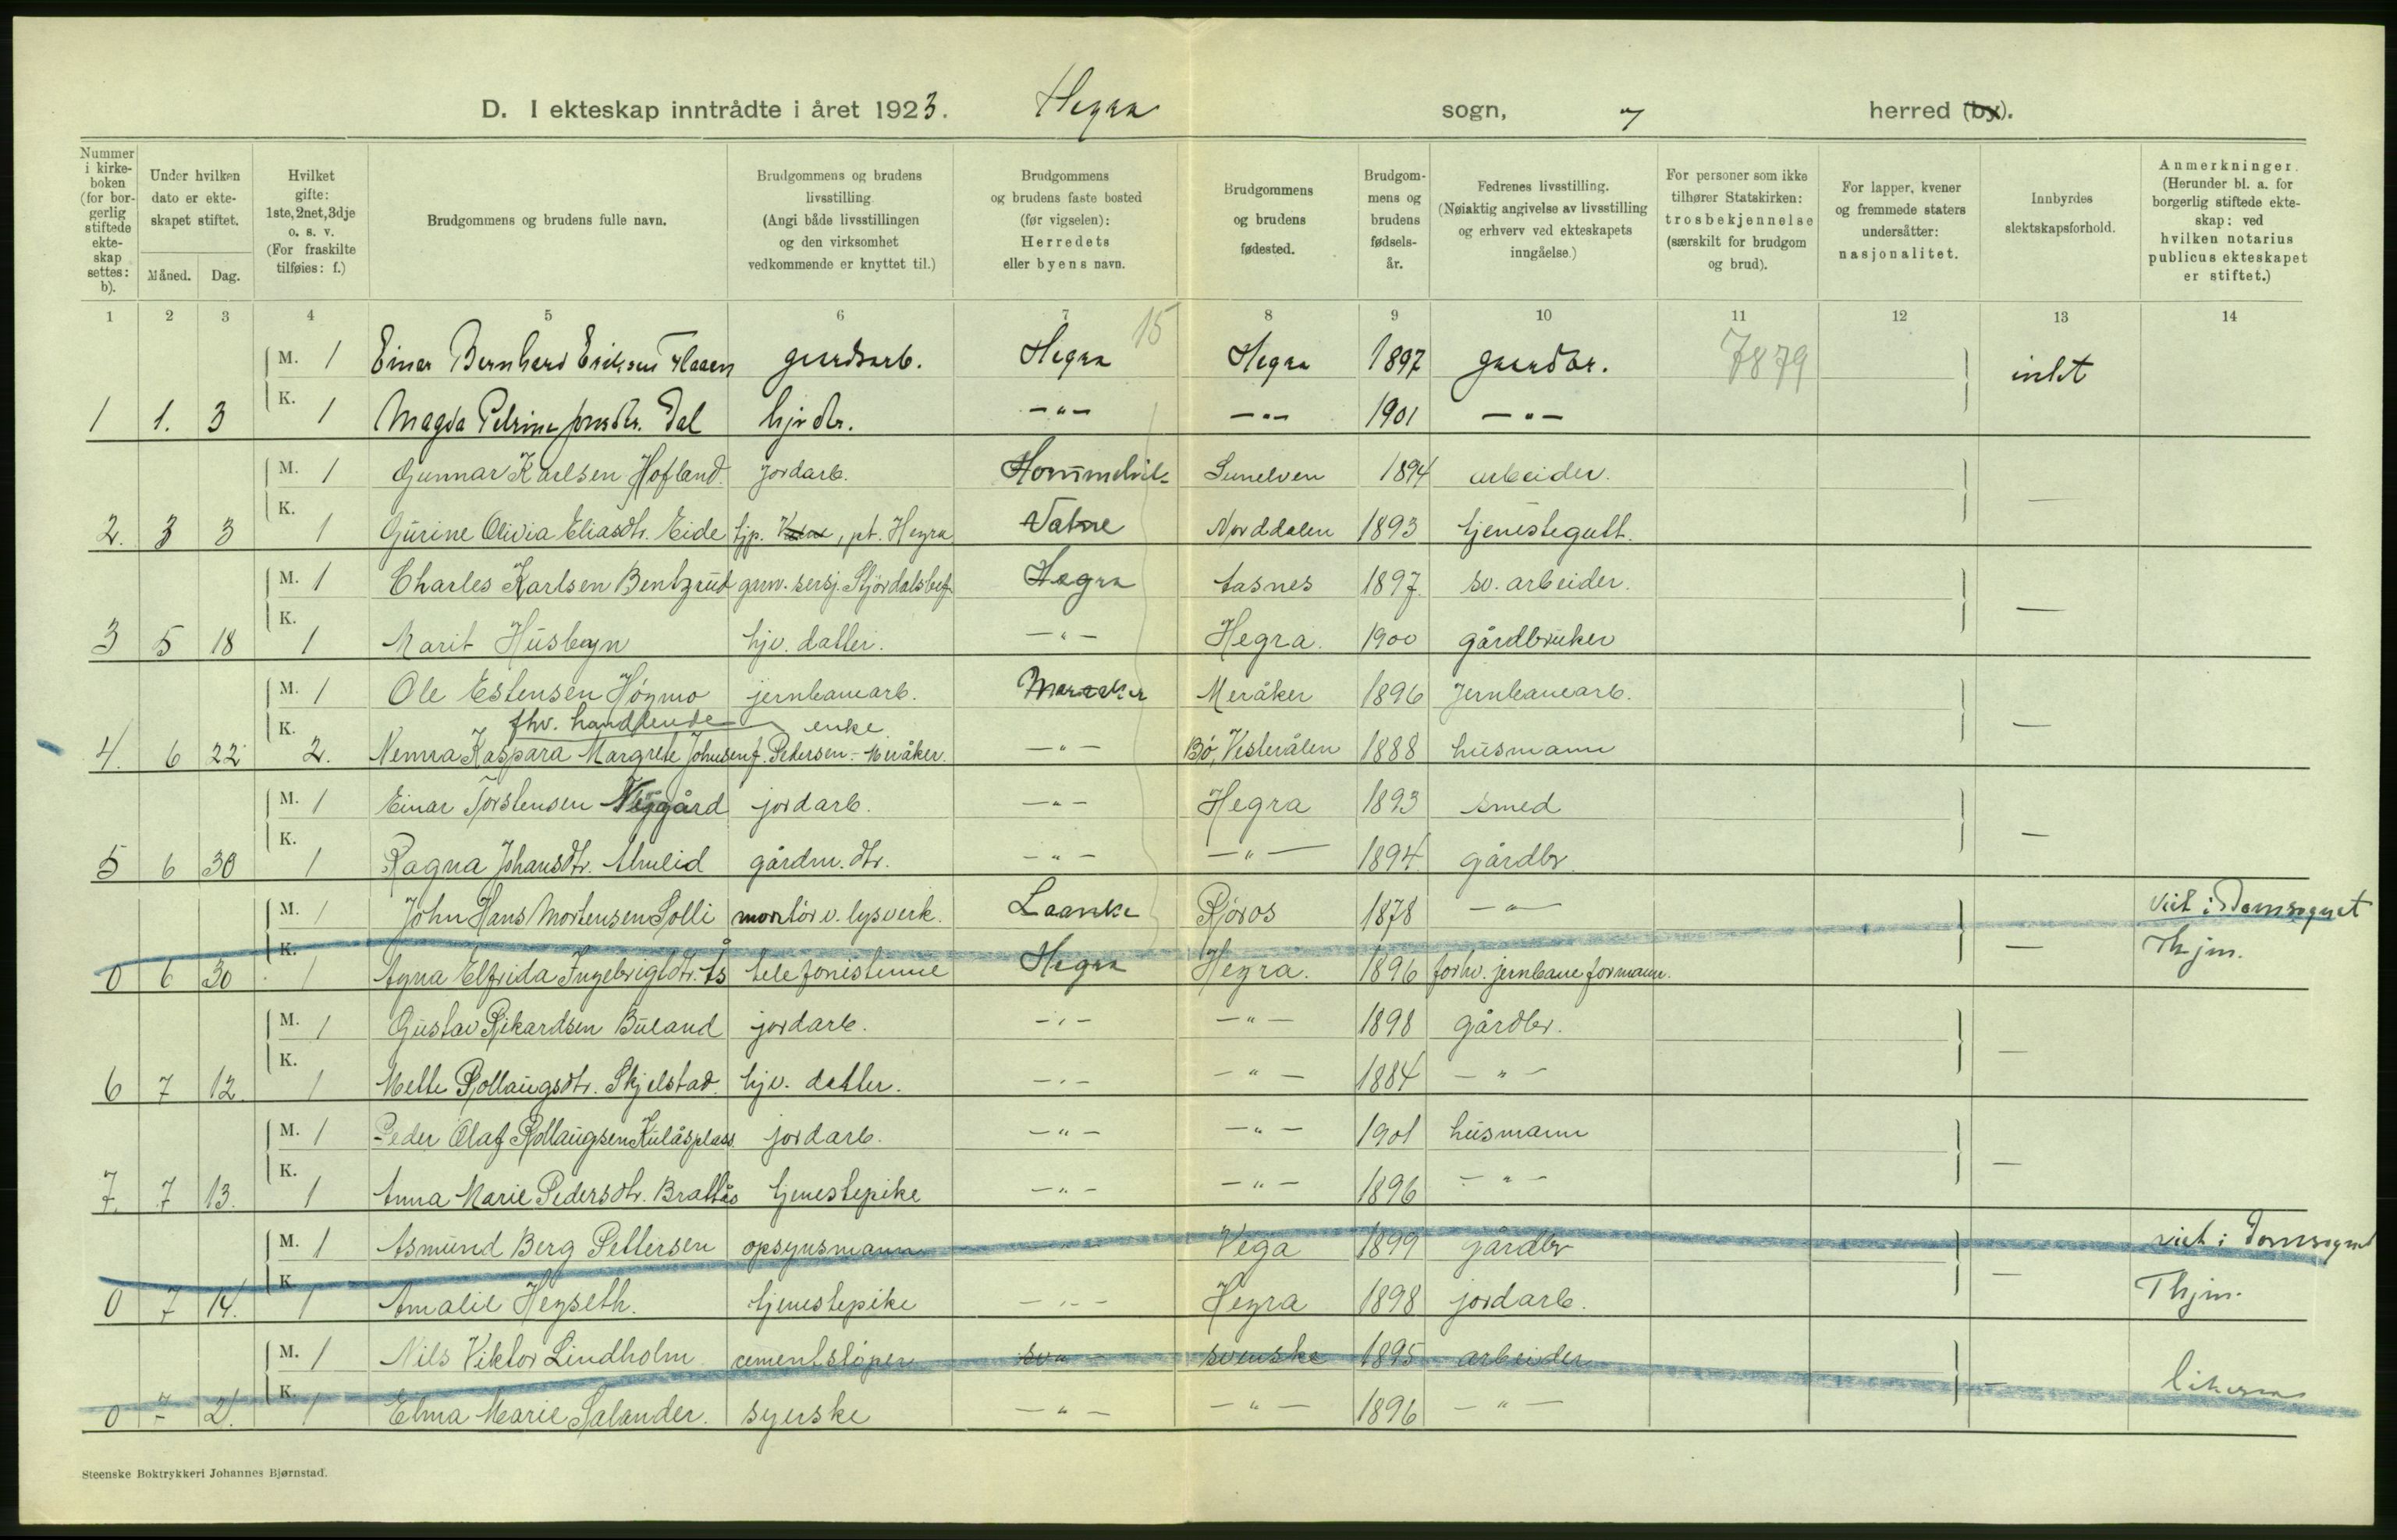 D. I ekteskap inntrådte i året 1923. Hegra sogn, " herred (by).
Nummer i kirke-boken (for bor-gerlig stiftede ekte-skap settes: b).
Under hvilken dato er ekte-skapet stiftet.
Måned. Dag.
Hvilket gifte: 1ste, 2net, 3dje o. s. v. (For fraskilte tilføies: f.)
Brudgommens og brudens fulle navn.
Brudgommens og brudens livsstilling. (Angi både livsstillingen og den virksomhet vedkommende er knyttet til.)
Brudgommens og brudens faste bosted (før vigselen): Herredets eller byens navn.
Brudgommens og brudens fødested.
Brudgom-mens og brudens fødsels-år.
Fedrenes livsstilling. (Nøiaktig angivelse av livsstilling og erhverv ved ekteskapets inngåelse.)
For personer som ikke tilhører Statskirken: trosbekjennelse (særskilt for brudgom og brud).
For lapper, kvener og fremmede staters undersåtter: nasjonalitet.
Innbyrdes slektskapsforhold.
Anmerkninger. (Herunder bl. a. for borgerlig stiftede ekte-skap: ved hvilken notarius publicus ekteskapet er stiftet.)
1 2 3 4 5 6 7 15 8 9 10 11 12 13 14
M. 1 Einar Bernhard Eriksen Flaaen gaardsarb. Hegra Hegra 1897 gaardbr. 7879 intet
1 1. 3 K. 1 Magda Petrine Dal hjv dtr. -"- -"- 1901 -"-
M. 1 Gunnar Karlsen Hofland jordarb. Hommelvik Sunelven 1894 arbeider.
2. 3 3 K. 1 Gurine Olivia Eliasdtr. Eide tjp. , pt. Hegra Vatne Norddalen 1893 tjenestegutt. —
M. 1 Charles Karlsen Bentzrud garn. sersj. Stjørdalsbef. Hegra Åsnes 1897. sv. arbeider.
3 5 18 K. 1 Marit Husbyn hjv. datter. -"- Hegra. 1900 gårdbruker —
M. 1 Ole Estensen Høgmo jernbanearb. Meraker Meråker 1896 jernbanearb.
fhv. handlende enke
4. 6 22 K. 2. Nenna Kaspara Margrete Johnsen f. Pedersen - Meråker. -"- Bø, Vesterålen 1888 husmann —
M. 1 Einar Torstensen Nygård jordarb. -"- Hegra 1893 smed
5 6 30 K. 1 Ragna Johansdtr. Almlid gårdm. dtr. -"- -"- 1894 gårdbr. —
M. 1 John Hans Mortensen Solli montør v. lysverk. Laanke Røros 1878 -"- viet i Domsognet
0 6 30 K. 1 Agna Elfrida Ingebrigtdtr. Ås telefonistinne Hegra Hegra. 1896 forhv. jernbaneformann. — Thjm.
M. 1 Gustav Rikardsen Buland jordarb. -"- -"- 1898 gårdbr.
6 7 12 K. 1 Mette Rollaugsdtr. Skjelstad. hjv. datter. -"- -"- 1884 -"- —
M. 1 Peder Olaf Rollaugsen Kulåsplass. jordarb. -"- -"- 1901 husmann
7. 7 13. K. 1 Anna Marie Pedersdtr. Brattås tjenestepike -"- -"- 1896 -"- —
M. 1 Asmund Berg Pettersen opsynsmann Vega 1899 gårdbr viet i Domsognet
0 7 14. K. 1 Amalie Hegseth. tjenestepike -"- Hegra 1898 jordarb. — Thjm.
M. 1 Nils Viktor Lindholm cementstøper svenske 1895 arbeider
0 7 21. K. 1 Elma Marie Salander. syerske -"- -"- 1896 -"- —
Steenske Boktrykkeri Johannes Bjørnstad.